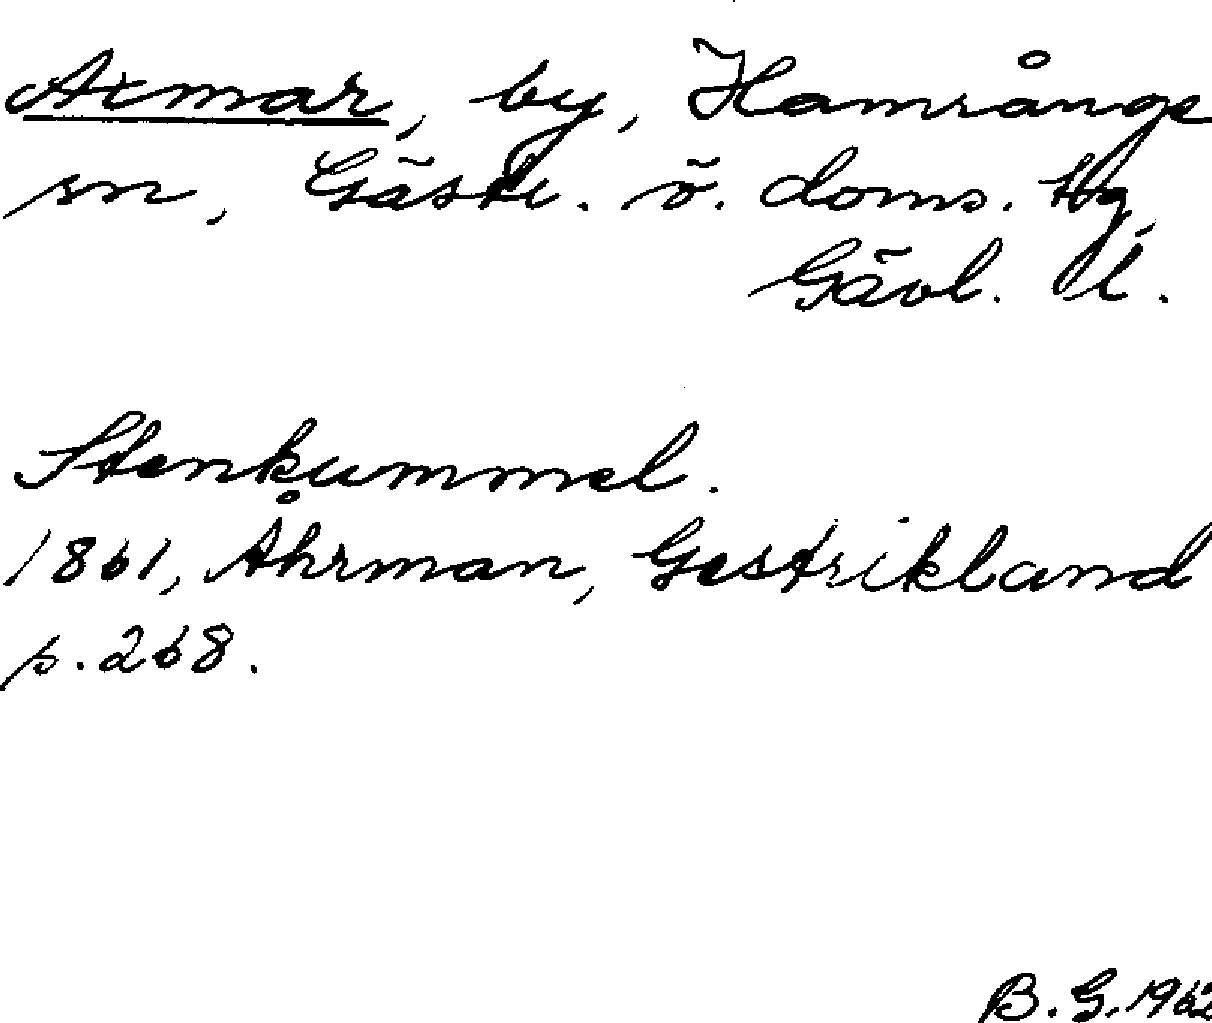 Axmar, by, Hamrånge
sn, Gästr. ö. doms. tg,
Gävl. l.
Stenkummel.
1861, Åhrman, Gestrikland
s. 268.
B. G. 1962